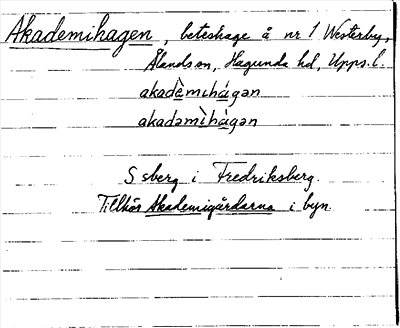 Akademihagen, beteshage å nr 1 Westerby,
Ålands sn, Hagunda hd, Upps. l.
akadèmɩhágən
akadəmìhágən
S sberg i Fredriksberg.
Tillhör Akademigårdarna i byn.